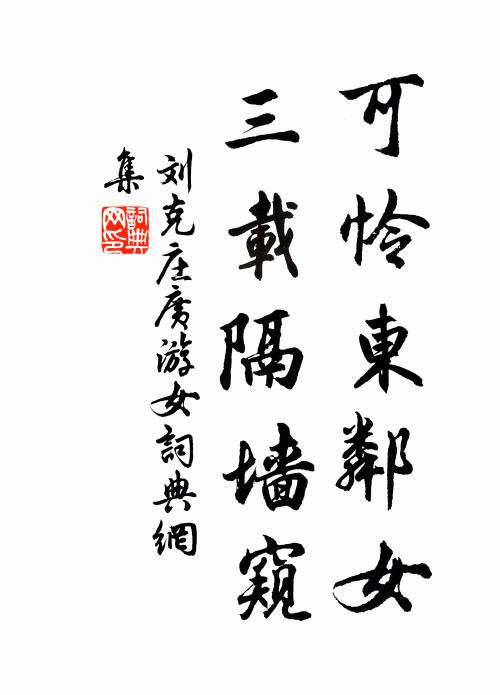 可怜東鄰女
三載隔墙窺
刘克庄廣游女詞典網
集
詞典網印